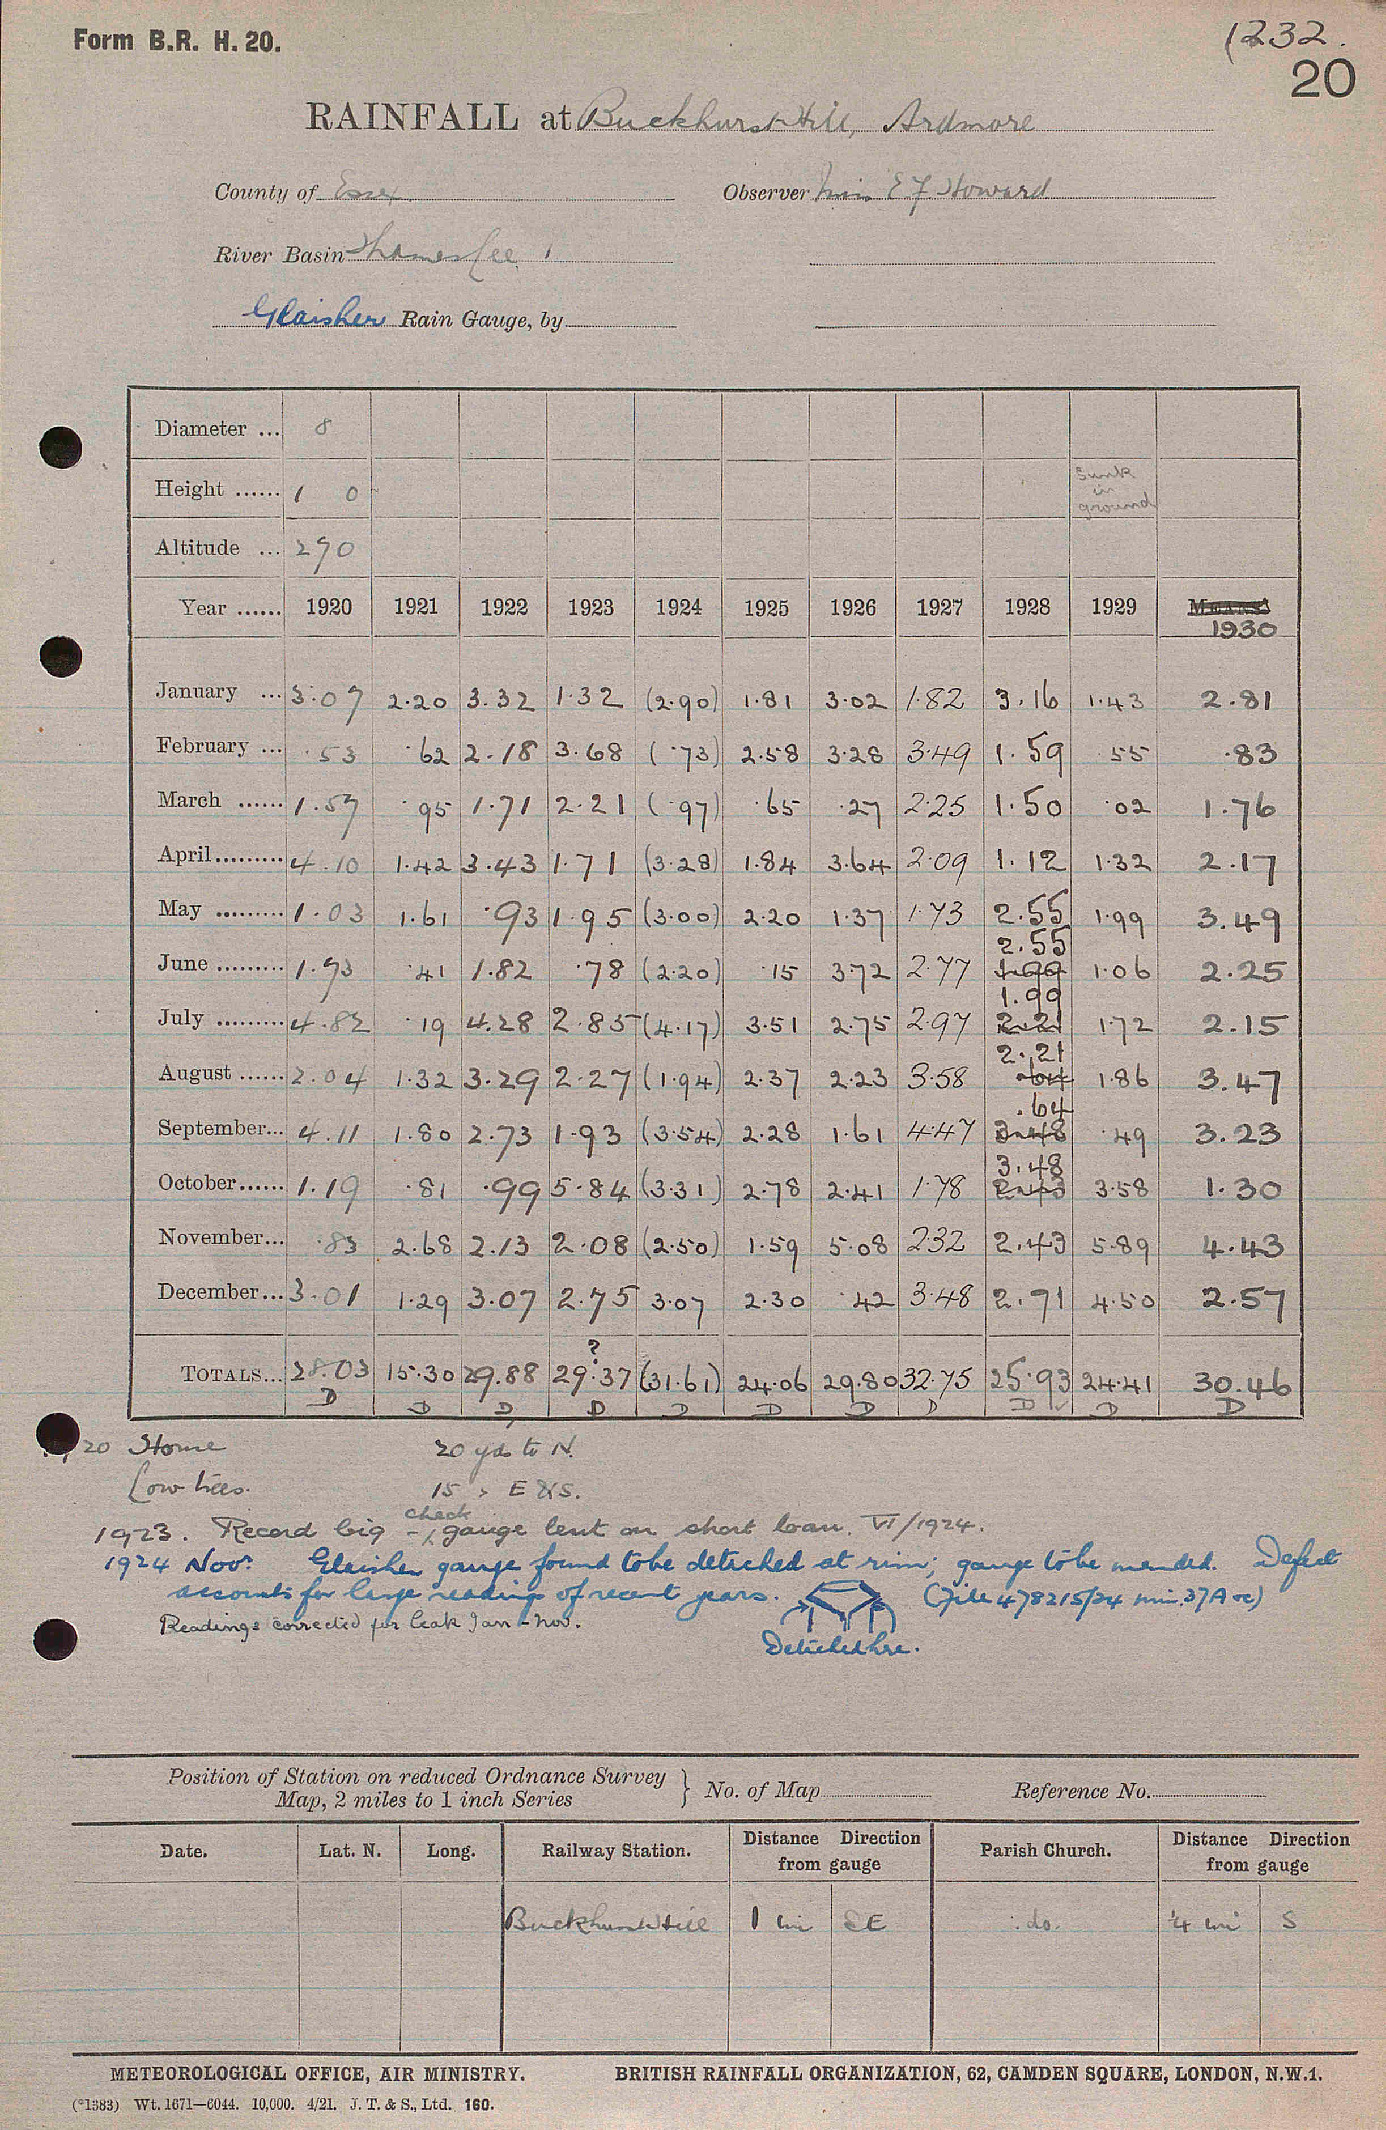 Form B.R. H. 20.
1232.
20
RAINFALL at Buckhurst Hill, Ardmore
County of Essex Observer Miss E F Howard
River Basin Thames Lee
Glaisher Rain Gauge, by
Diameter ... 8
Height ...... 1 0 Sunk in ground
Altitude ... 290
Year ...... 1920 1921 1922 1923 1924 1925 1926 1927 1928 1929 MEANS 1930
January ... 3.07 2.20 3.32 1.32 (2.90) 1.81 3.02 1.82 3.16 1.43 2.81
February ... .53 .62 2.18 3.68 (.73) 2.58 3.28 3.49 1.59 .55 .83
March ...... 1.57 .95 1.71 2.21 (.97) .65 .27 2.25 1.50 .02 1.76
April ......... 4.10 1.42 3.43 1.71 (3.28) 1.84 3.64 2.09 1.12 1.32 2.17
May ......... 1.03 1.61 .93 1.95 (3.00) 2.20 1.37 1.73 2.55 1.99 3.49
June ......... 1.73 .41 1.82 .78 (2.20) .15 3.72 2.77 2.55 1.99 1.06 2.25
July ......... 4.82 .19 4.28 2.85 (4.17) 3.51 2.75 2.97 1.99 2.21 1.72 2.15
August ...... 2.04 1.32 3.29 2.27 (1.94) 2.37 2.23 3.58 2.21 .64 1.86 3.47
September... 4.11 1.80 2.73 1.93 (3.54) 2.28 1.61 4.47 .64 3.48 .49 3.23
October...... 1.19 .81 .99 5.84 (3.31) 2.78 2.41 1.78 3.48 2.43 3.58 1.30
November... .83 2.68 2.13 2.08 (2.50) 1.59 5.08 2.32 2.43 5.89 4.43
December... 3.01 1.29 3.07 2.75 3.07 2.30 .42 3.48 2.91 4.50 2.57
?
TOTALS... 28.03 15.30 29.88 29.37 (31.61) 24.06 29.80 32.75 25.93 24.41 30.46
D D D D D D D D D D D
1920 House 20 yds to N.
Low trees. 15 " E & S.
check
1923. Record big - gauge lent on short loan. VI/1924.
1924 Nov: Glaisher gauge found to be detached at rim; gauge to be mended. Defect
accounts for large readings of recent years. (File 478215/24 min. 37A
Readings corrected for leak Jan - Nov.
Detached here.
Position of Station on reduced Ordnance Survey
Map, 2 miles to 1 inch Series } No. of Map Reference No.
Date. Lat. N. Long. Railway Station. Distance Direction from gauge Parish Church. Distance Direction from gauge
Buckhurst Hill 1 mi SE do. ¼ mi S
METEOROLOGICAL OFFICE, AIR MINISTRY. BRITISH RAINFALL ORGANIZATION, 62, CAMDEN SQUARE, LONDON, N.W.1.
(*1383) Wt. 1671—6044. 10,000. 4/21. J. T. & S., Ltd. 160.